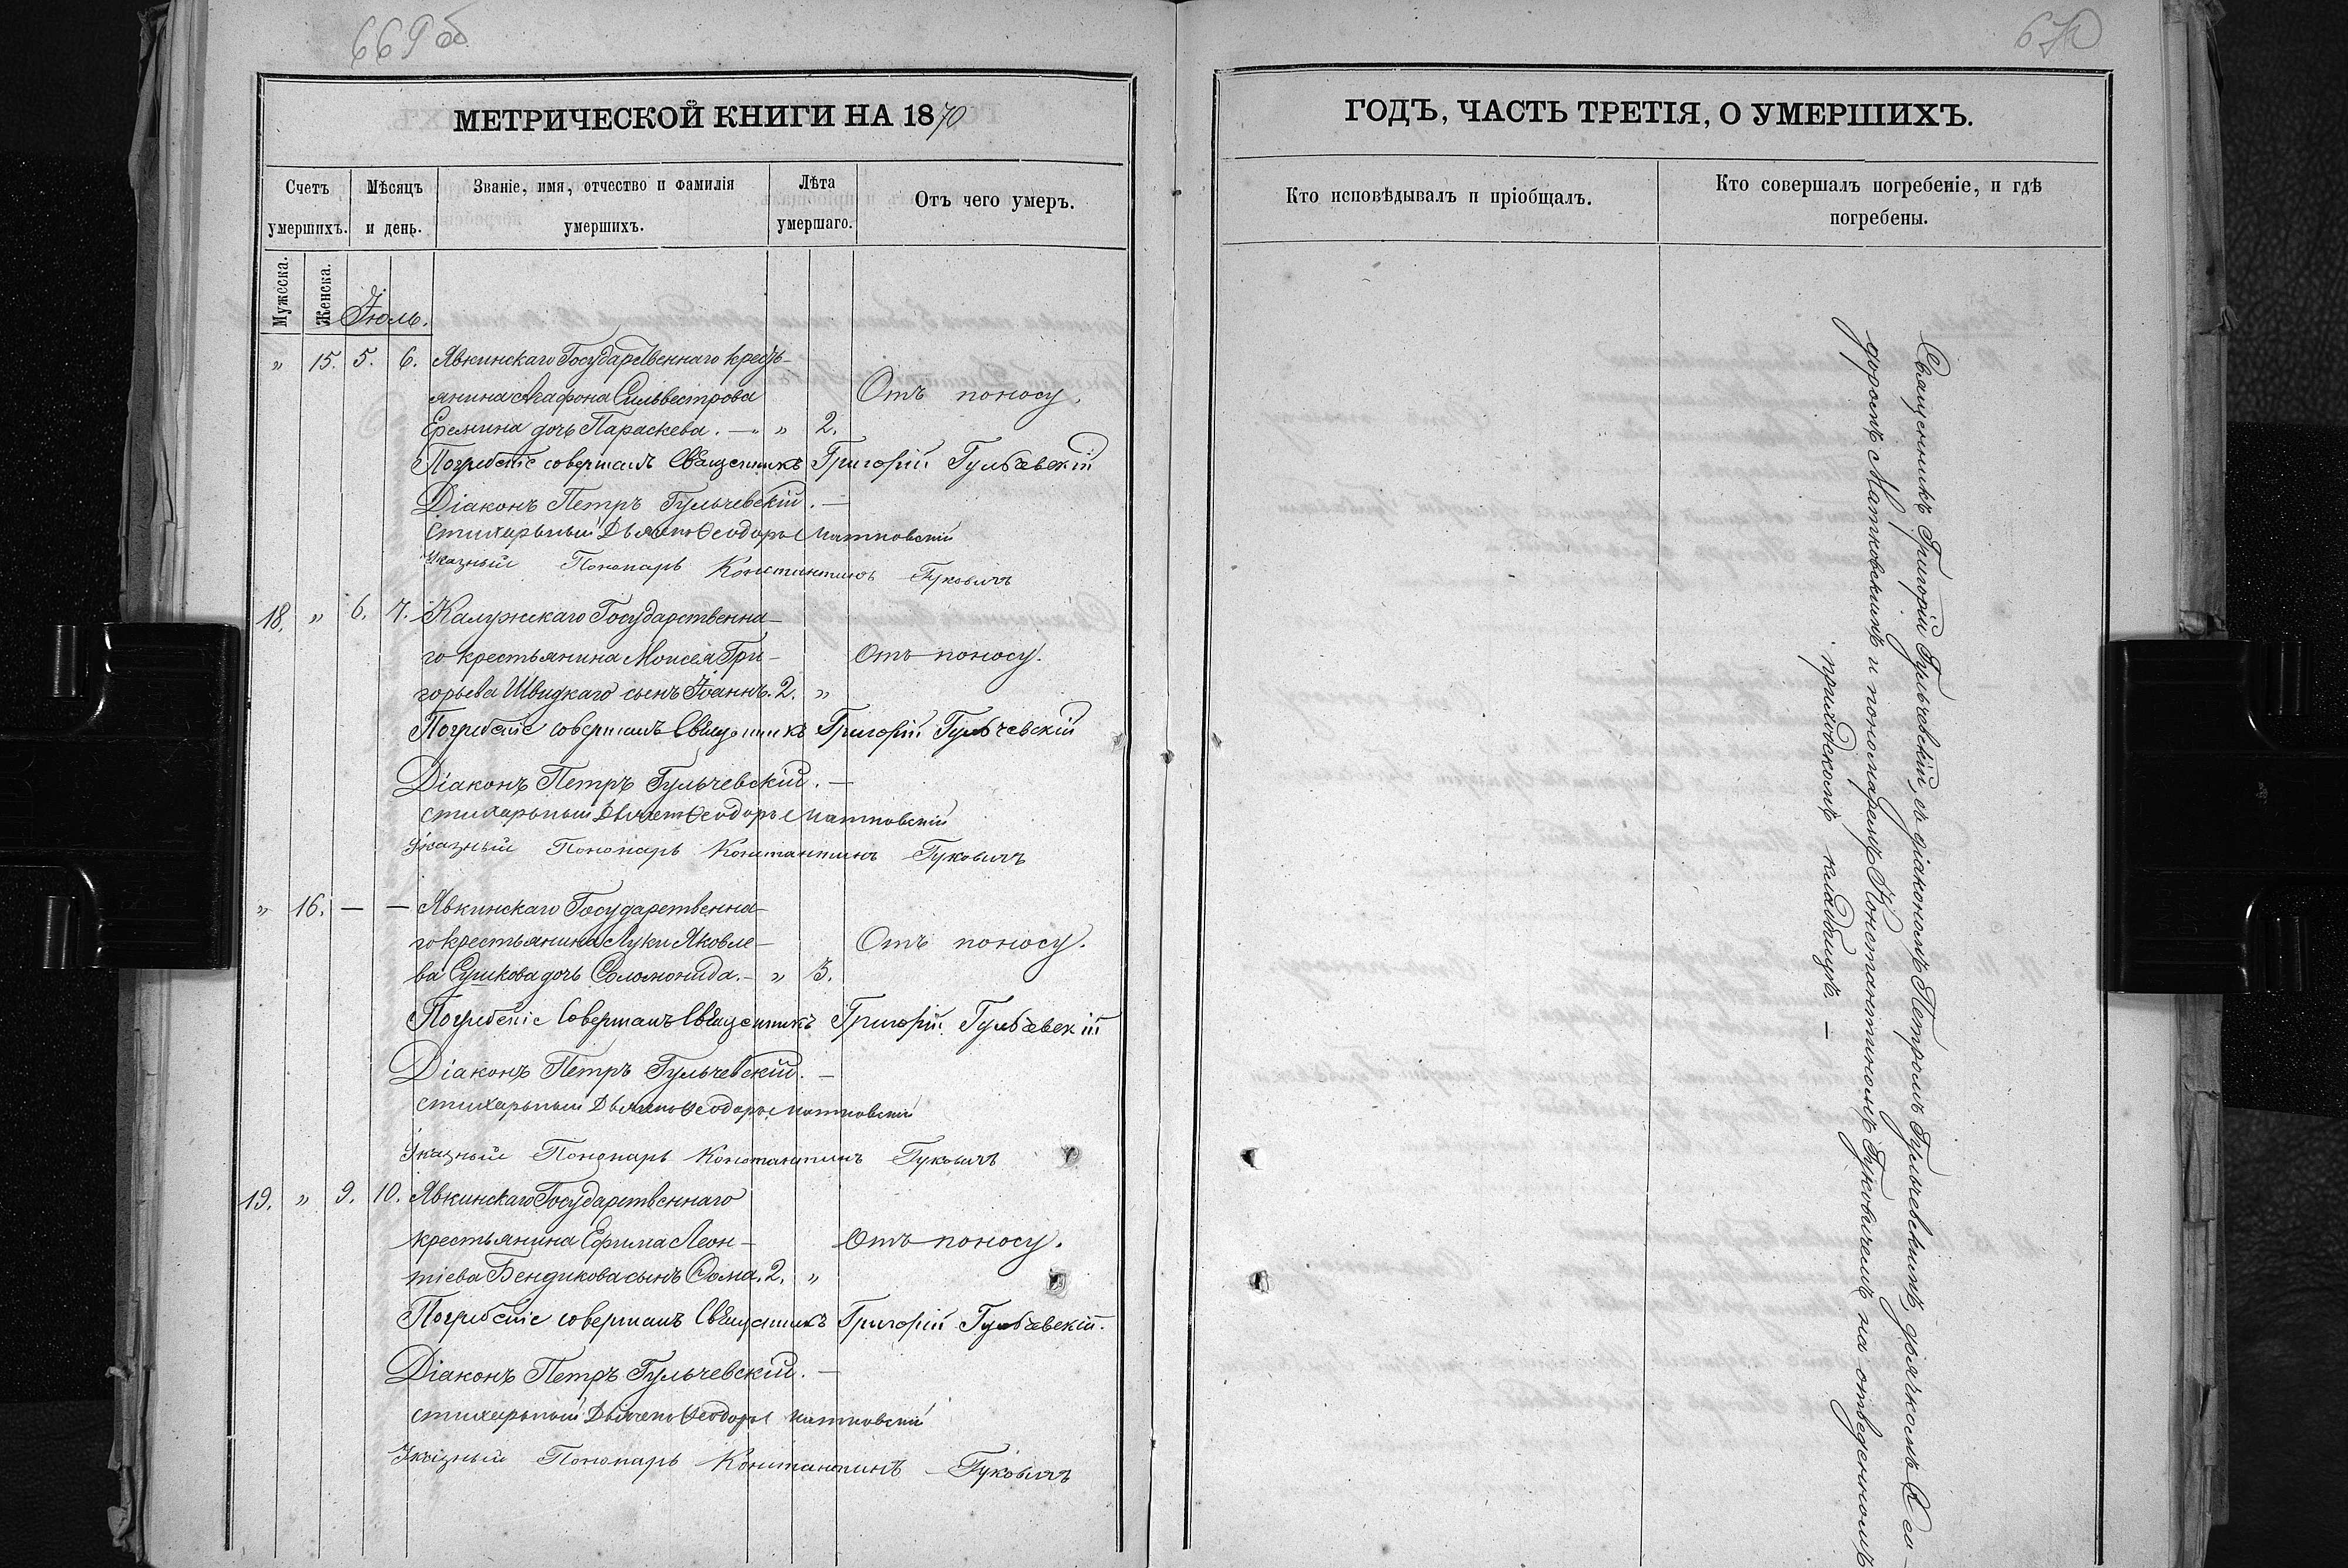 669 об
670
МЕТРИЧЕСКОЙ КНИГИ НА 1870
Счетъ умершихъ.
Мѣсяцъ и день.
Званіе, имя, отчество и фамилія умершихъ.
Лѣта умершаго.
Отъ чего умеръ.
Мужеска.
Женска.
Іюль.
" 15. 5. 6. Явкинскаго Государственнаго кресть-
янина Агафона Сильвестрова Отъ поносу.
Еремина дочь Параскева. — " 2.
Погребеніе совершалъ Священникъ Григорій Гульчевскій
Діаконъ Петръ Гульчевскій. —
Стихарный Дьячекъ Ѳеодоръ Матковскій
Указный Пономарь Константинъ Гуковичъ
18. " 6. 7. Калужскаго Государственна-
го крестьянина Моисея Гри- Отъ поносу.
горьева Швидкаго сынъ Іоаннъ. 2. "
Погребеніе совершалъ Священникъ Григорій Гульчевскій
Діаконъ Петръ Гульчевскій. —
Стихарный Дьячекъ Ѳеодоръ Матковскій
Указный Пономарь Константинъ Гуковичъ
" 16. — — Явкинскаго Государственна-
го крестьянина Луки Яковле- Отъ поносу.
ва Сушкова дочь Соломонида. — " 3.
Погребеніе Совершалъ Священникъ Григорій Гульчевскій
Діаконъ Петръ Гульчевскій. —
Стихарный Дьячекъ Ѳеодоръ Матковскій
Указный Пономарь Константинъ Гуковичъ
19. " 9. 10. Явкинскаго Государственнаго
крестьянина Ефима Леон- Отъ поносу.
тіева Бендикова сынъ Ѳома. 2. "
Погребеніе совершалъ Священникъ Григорій Гульчевскій.
Діаконъ Петръ Гульчевскій. —
Стихарный Дьячекъ Ѳеодоръ Матковскій
Указный Пономарь Константинъ Гуковичъ
ГОДЪ, ЧАСТЬ ТРЕТІЯ, О УМЕРШИХЪ.
Кто исповѣдывалъ и пріобщалъ.
Кто совершалъ погребеніе, и гдѣ
погребены.
Священникъ Григорій Гульчевскій, съ діакономъ Петромъ Гульчевскимъ, дьячкомъ Ѳео-
доромъ Матковскимъ и пономаремъ Константиномъ Гуковичемъ на отведенномъ
приходскомъ кладбищѣ. —